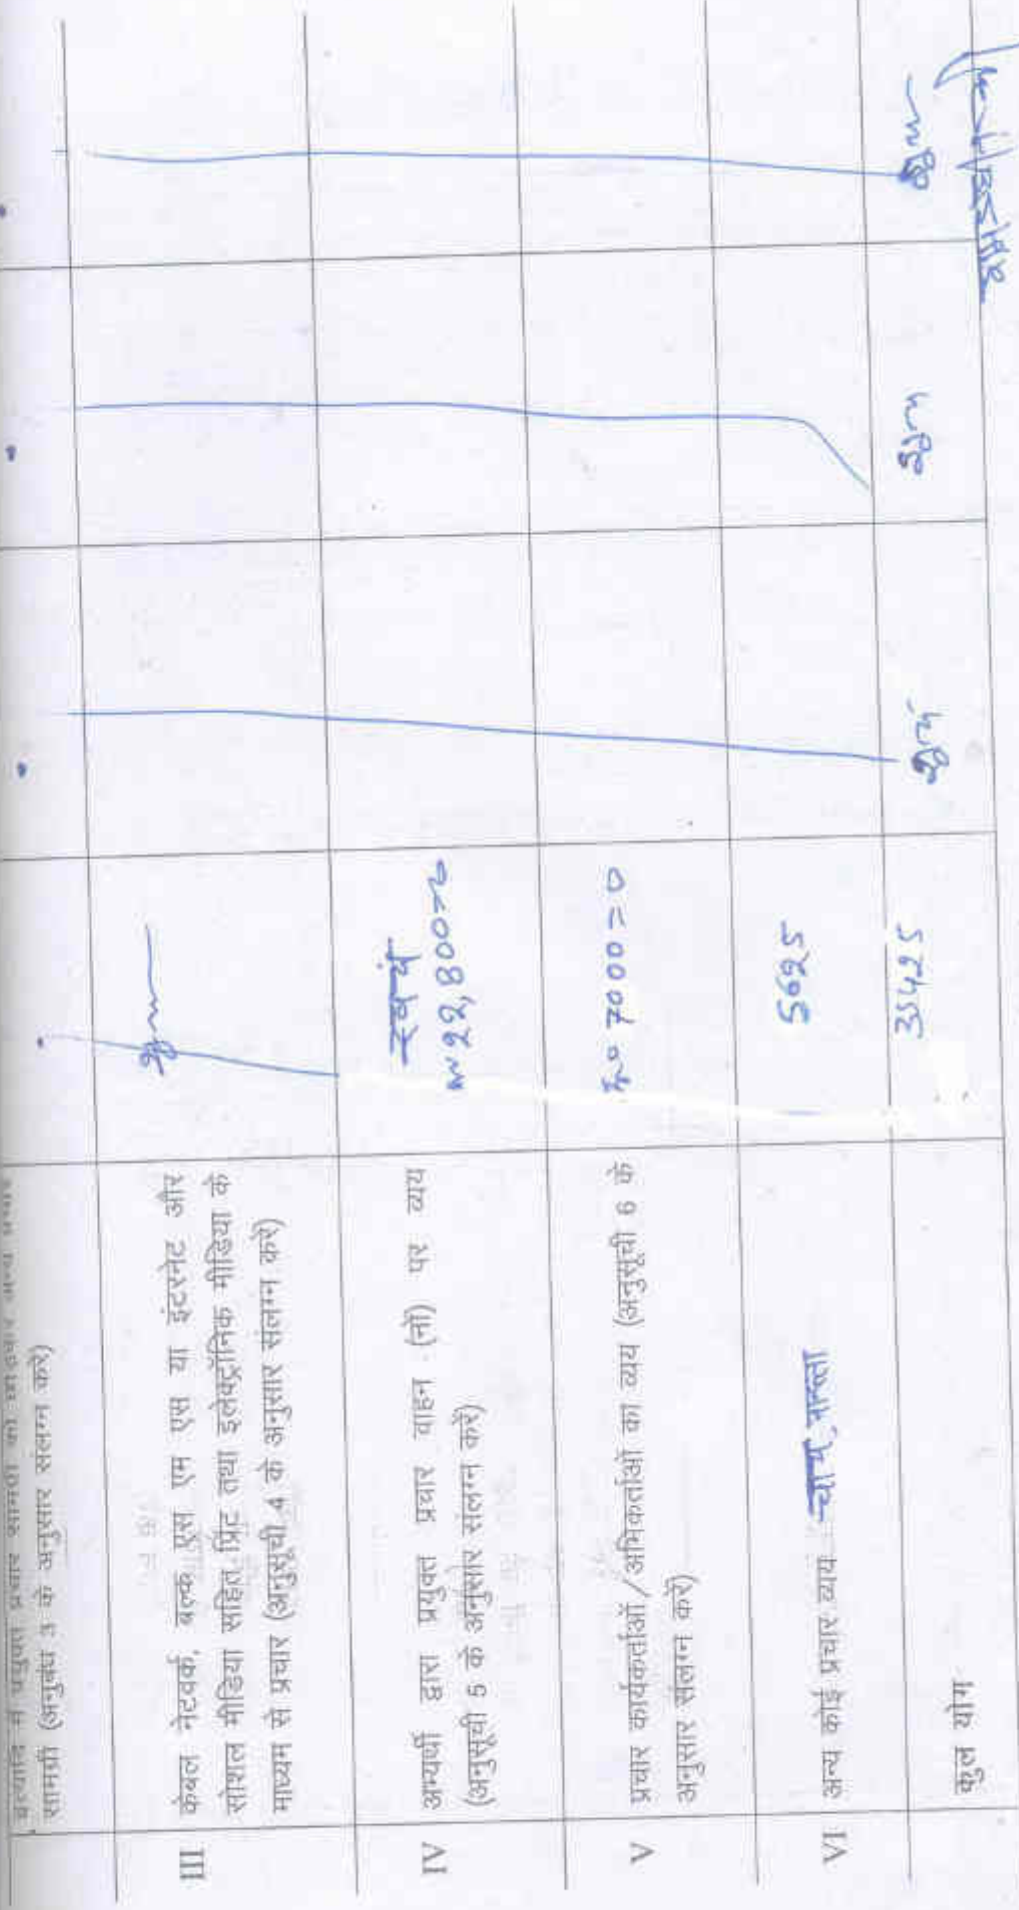 सामग्री (अनुबंध 3 के अनुसार संलग्न करें)
III
केबल नेटवर्क, बल्क एस एम एस या इंटरनेट और
सोशल मीडिया सहित प्रिंट तथा इलेक्ट्रॉनिक मीडिया के
माध्यम से प्रचार (अनुसूची 4 के अनुसार संलग्न करें)
शून्य
IV
अभ्यर्थी द्वारा प्रयुक्त प्रचार वाहन (नों) पर व्यय
(अनुसूची 5 के अनुसार संलग्न करें)
स्वयं
22,800=00
V
प्रचार कार्यकर्ताओं / अभिकर्ताओं का व्यय (अनुसूची 6 के
अनुसार संलग्न करें)
रू० 7000=0
VI
अन्य कोई प्रचार व्यय चाय, नाश्ता
5625
कुल योग
35425
शून्य
शून्य
शून्य